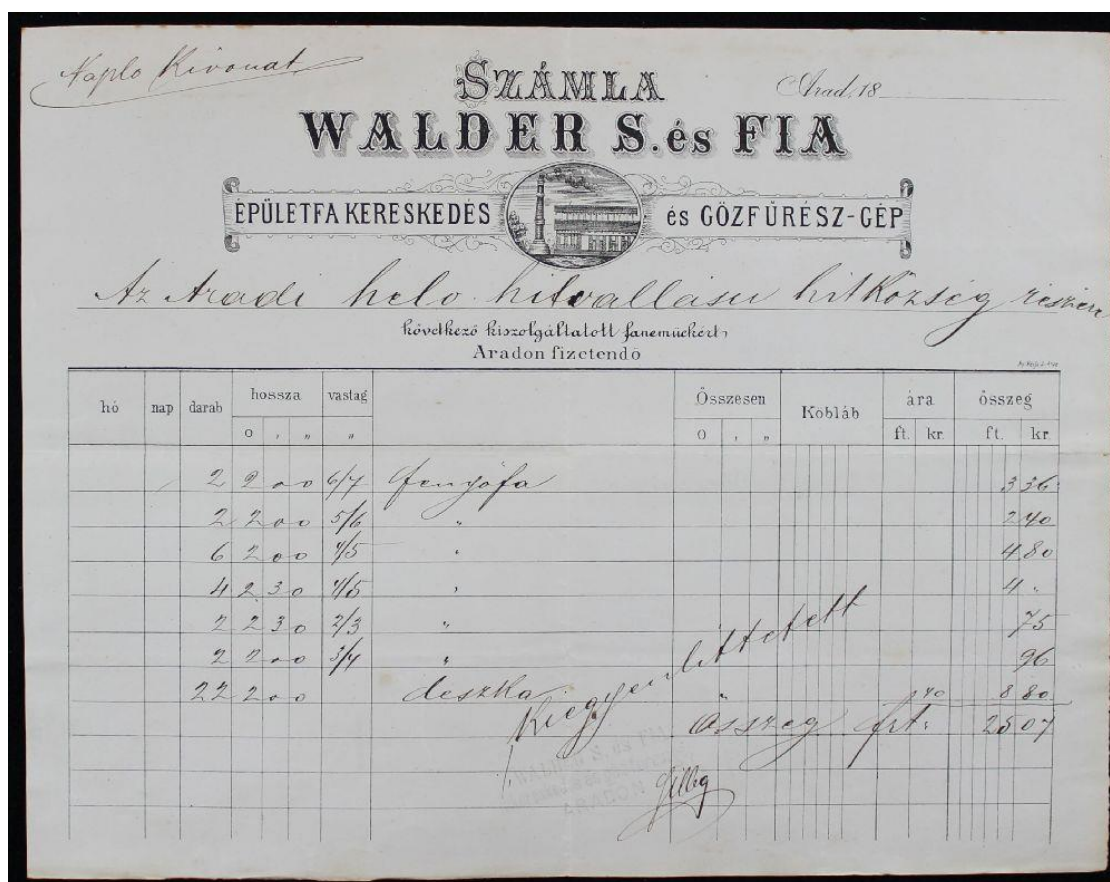 Napló Kivonat
SZÁMLA
Arad, 18
WALDER S. és FIA
ÉPÜLETFA KERESKEDÉS és GŐZFŰRÉSZ-GÉP
Az Aradi helv. hitvallásu hitközség részére
következő kiszolgáltatott faneműekért,
Aradon fizetendő
hó nap darab hossza vastag Összesen Kobláb ára összeg
o , „ „ o , „ ft. kr. ft. kr.
2 2 0 0 6/7 fenyőfa 3 36
2 2 0 0 5/6 „ 2 40
6 2 0 0 4/5 „ 4 80
4 2 3 0 4/5 „ 4 „
2 2 3 0 2/3 „ 75
2 2 0 0 3/4 „ 96
22 2 0 0 deszka „ 40 8 80
Kiegyenlittetett
összeg frt: 25 07
WALDER S. és FIA
ARADON